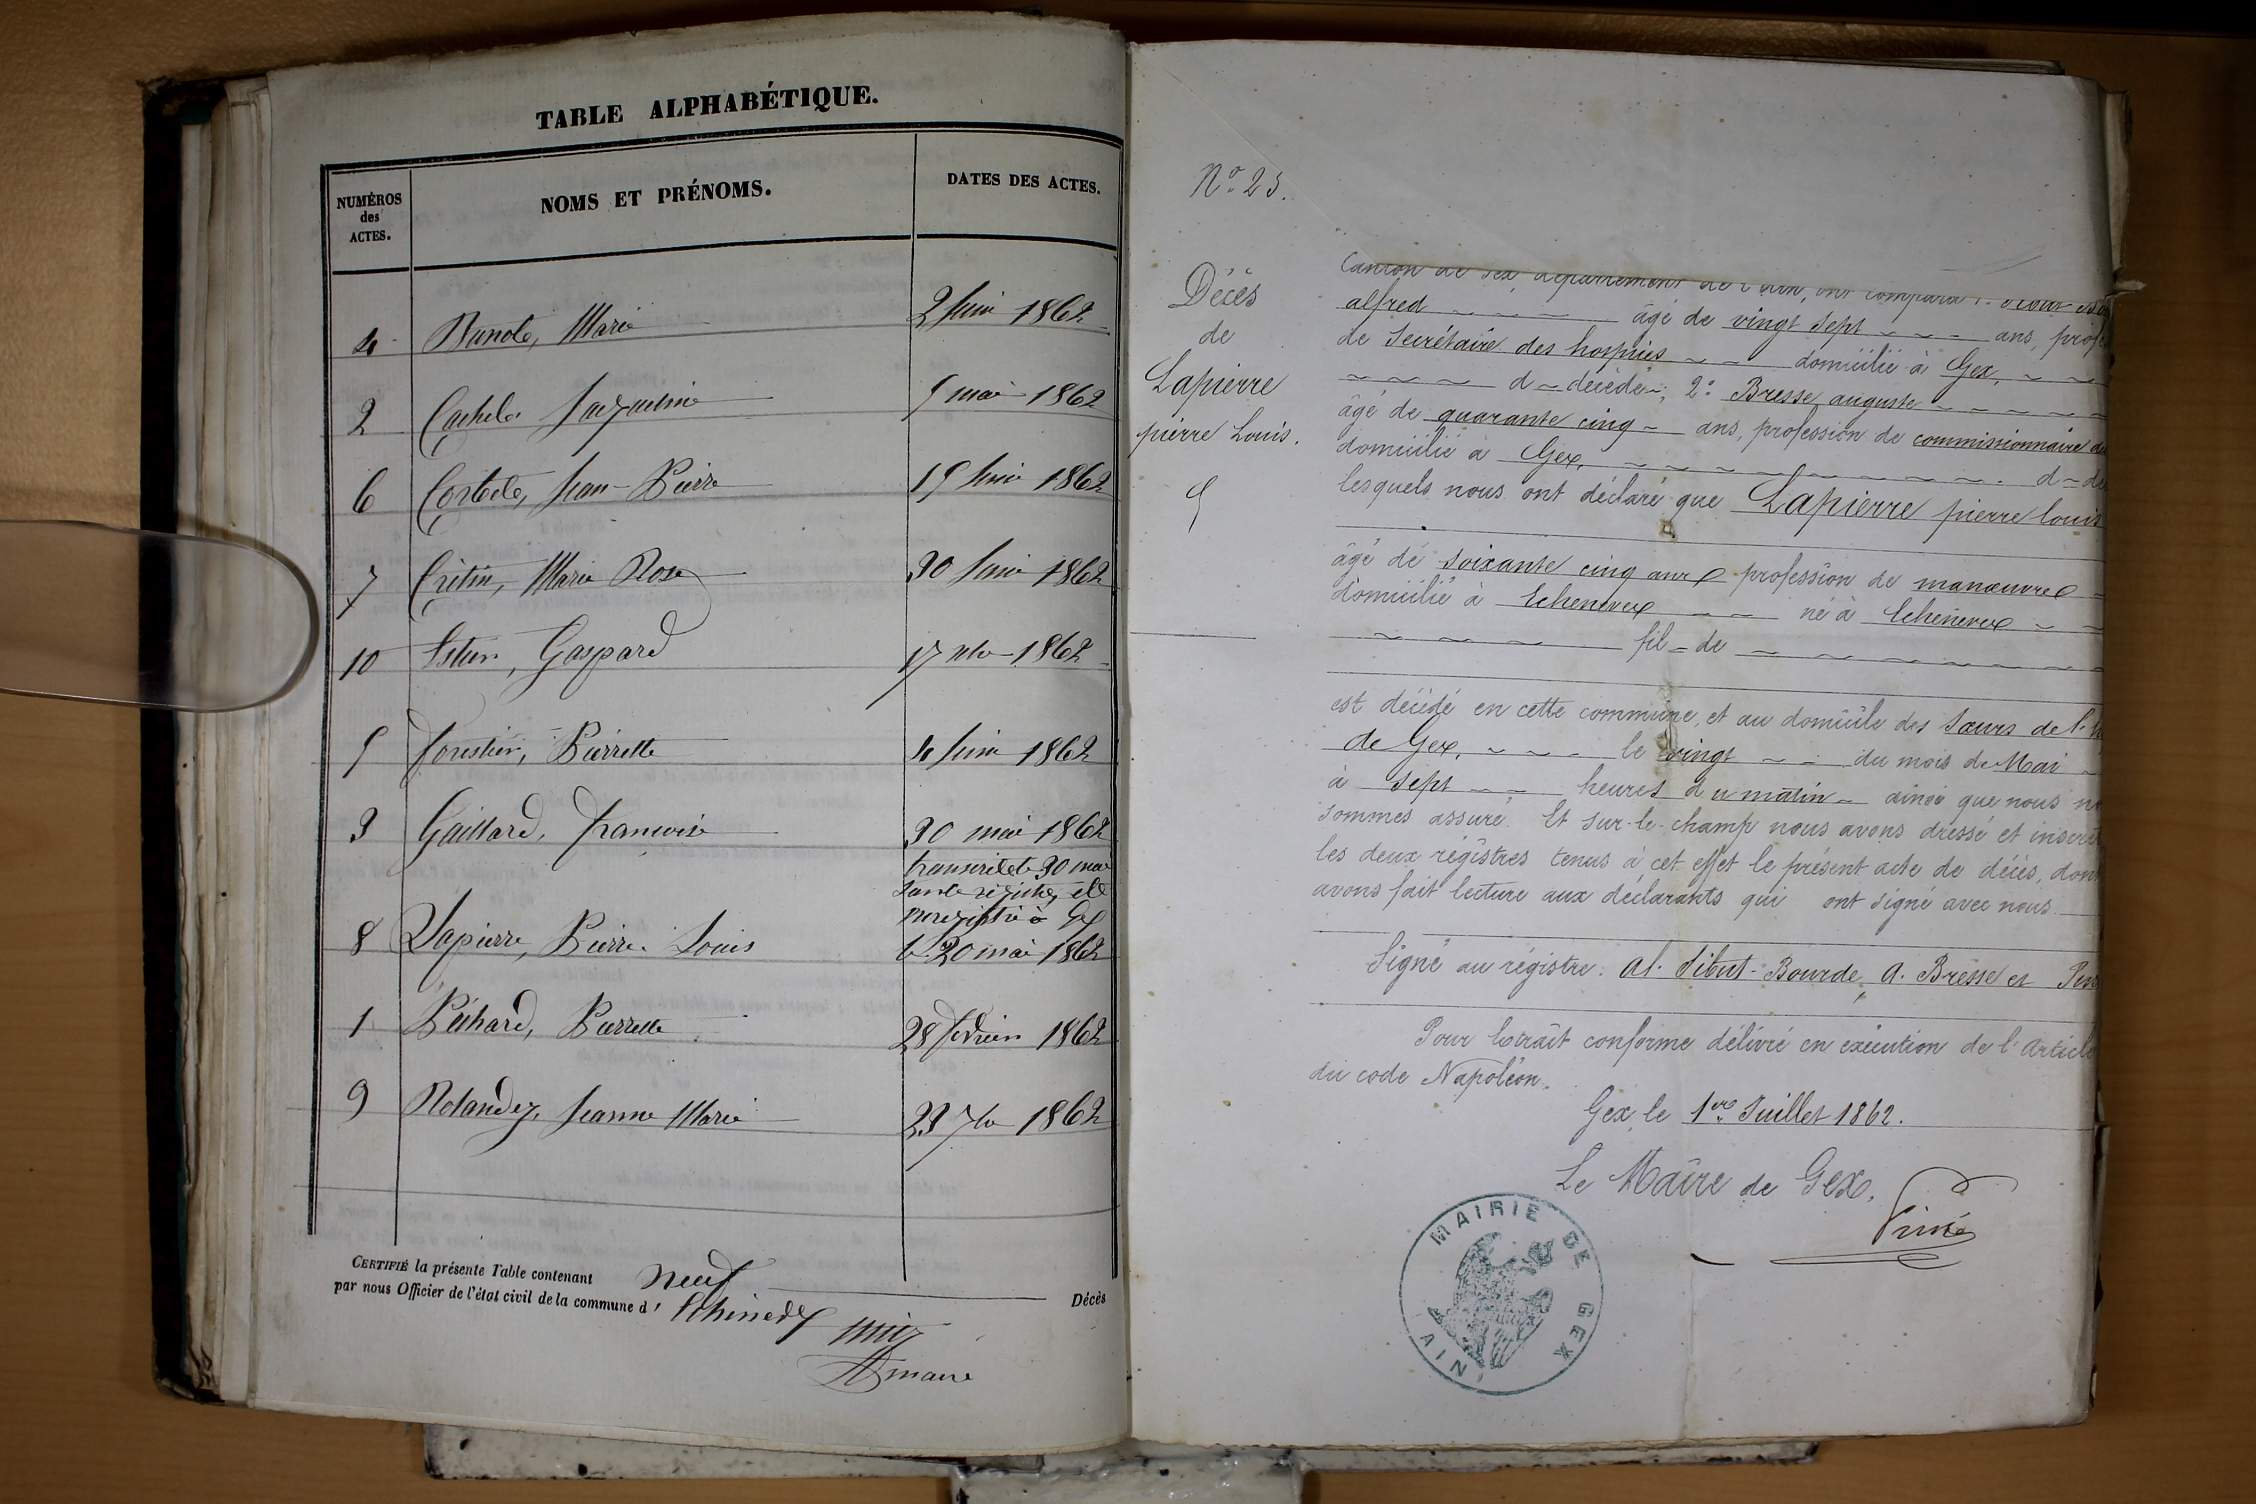 TABLE ALPHABÉTIQUE.
NUMÉROS des ACTES.
NOMS ET PRÉNOMS.
DATES DES ACTES.
4 Marie 2 Juin 1862
2 Jacqueline 5 mai 1862
6 Jean-Pierre 15 Juin 1862
7 Critin, Marie Rose 30 Juin 1862
10 Gaspard 17 1862
5 Forestier, Pierrette 4 Juin 1862
3 Gaillard, Francoise 30 mai 1862
transcrit le 30 mai
enregistré à Gex
8 Lapierre, Pierre Louis le 20 mai 1862
1 Péchard, Pierrette 28 février 1862
9 Jeanne Marie 23 7bre 1862
CERTIFIÉ la présente Table contenant neuf Décès
par nous Officier de l'état civil de la commune d'
maire
No 25.
Décès
de
Lapierre
pierre Louis.
Canton de Gex, département de l'ain, ont comparu 1.
alfred âgé de vingt sept ans,
de Secrétaire des hospices domicilié à Gex,
d décédé; 2° Bresse, auguste
âgé de quarante cinq ans, profession de commissionnaire
domicilié à Gex, d
lesquels nous ont déclaré que Lapierre pierre louis
âgé de soixante cinq ans profession de manœuvre
domicilié à Echenevex né à Echenevex
fil de
est décédé en cette commune, et au domicile des Sœurs de
de Gex, le vingt du mois de Mai
à sept heures du matin ainsi que nous
sommes assuré. Et sur-le-champ nous avons dressé et inscrit
les deux régistres tenus à cet effet le présent acte de décès, dont
avons fait lecture aux déclarants qui ont signé avec nous
Signé au régistre: al. Sibut-Bourde, A. Bresse et
Pour Extrait conforme délivré en exécution de l'Article
du code Napoléon.
Gex, le 1er Juillet 1862.
Le Maire de Gex,
MAIRIE DE GEX
AIN